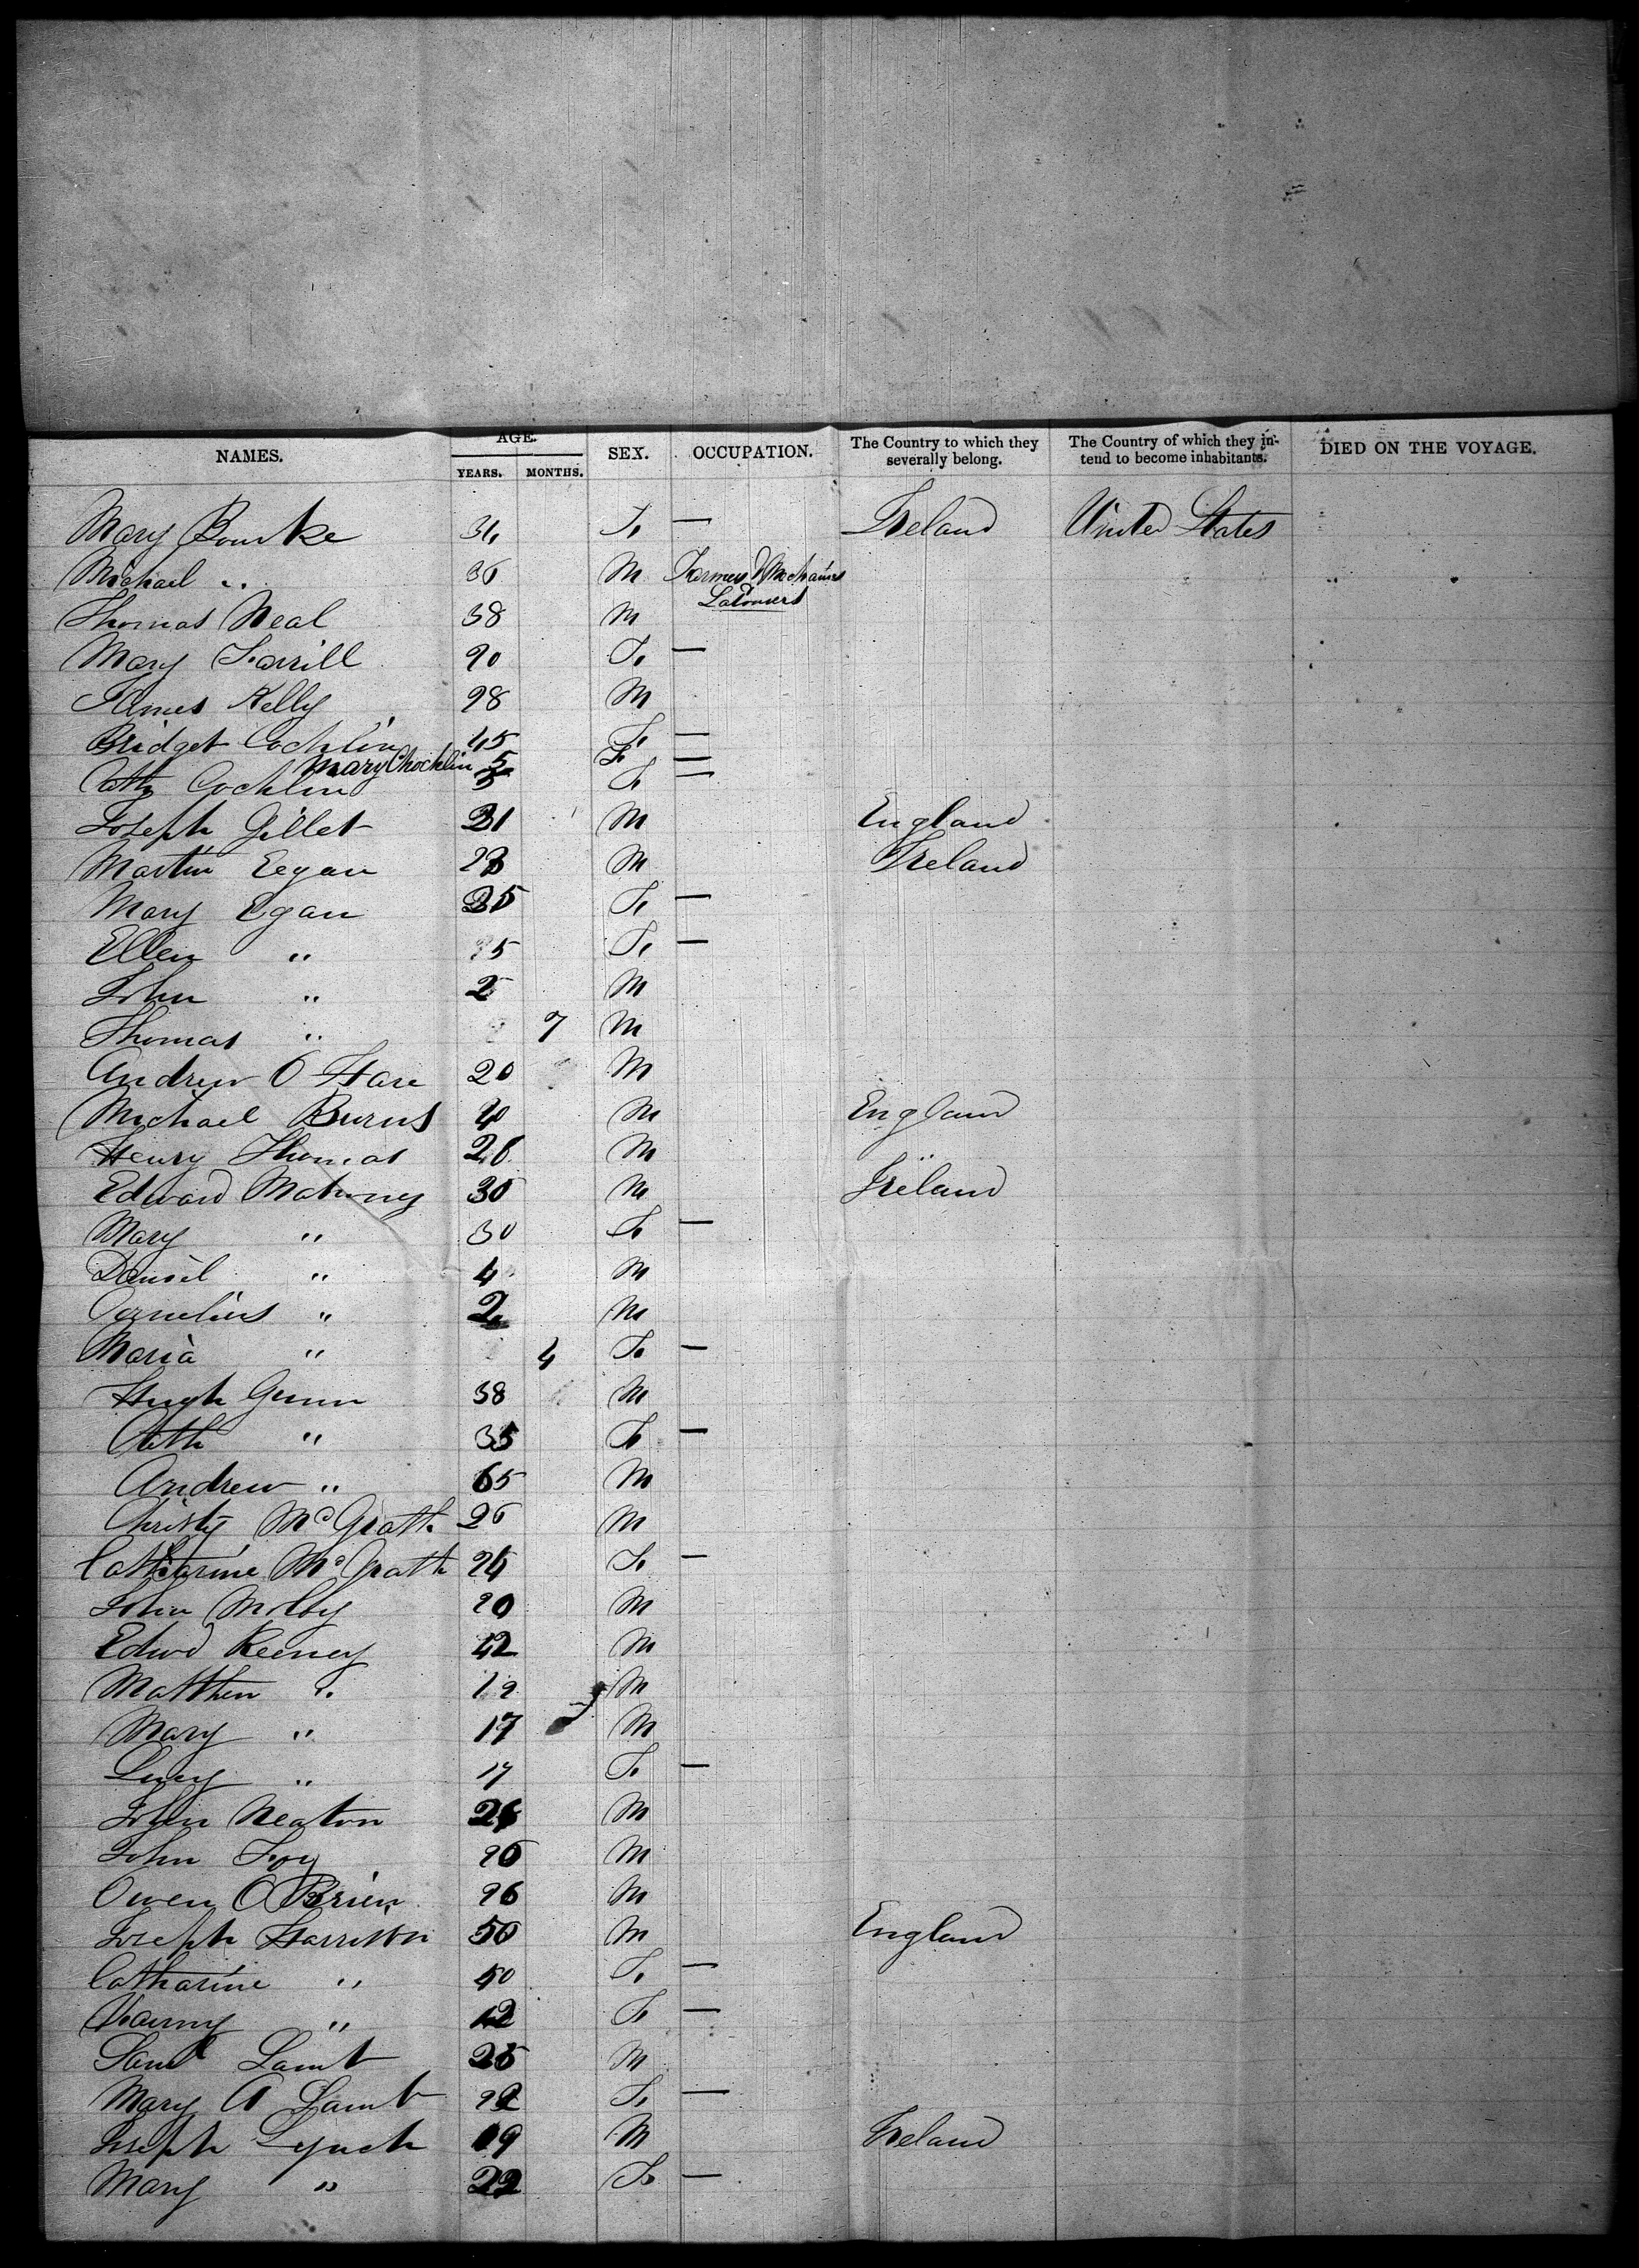 NAMES. AGE. YEARS. MONTHS. SEX. OCCUPATION. The Country to which they severally belong. The Country of which they intend to become inhabitants. DIED ON THE VOYAGE.
Mary Bourke 34 F. — Ireland United States
Michael " 36 M Farmers Mechanics
Labourers
Thomas Neal 38 M
Mary Farrill 20 F. —
James Kelly 28 M
Bridget Cochlin 45 F. —
Mary Chochlin 5 F —
Cath Cochlin 3 F —
Joseph Gillet 21 M England
Martin Eegan 28 M Ireland
Mary Egan 25 F. —
Ellen " 25 F. —
John " 2 M
Thomas " 7 M
Andrew O Hare 20 M
Michael Burns 40 M England
Henry Thomas 26 M
Edward Mahoney 35 M Ireland
Mary " 30 F. —
Daniel " 4 M
Cornelius " 2 M
Maria " 4 F. —
Hugh Gunn 38 M
Cath " 35 F —
Andrew " 65 M
Christy McGrath 26 M
Catharine McGrath 24 F. —
John Moloy 20 M
Edwd Keeney 42 M
Matthew " 19 M
Mary " 17 M
Lucy " 17 F. —
John Neaton 26 M
John Foy 26 M
Owen O Brien 26 M
Joseph Harriston 50 M England
Catharine " 40 F. —
" 12 F. —
Saml Lamb 25 M
Mary A Lamb 22 F. —
Joseph Lynch 19 M Ireland
Mary " 22 F. —